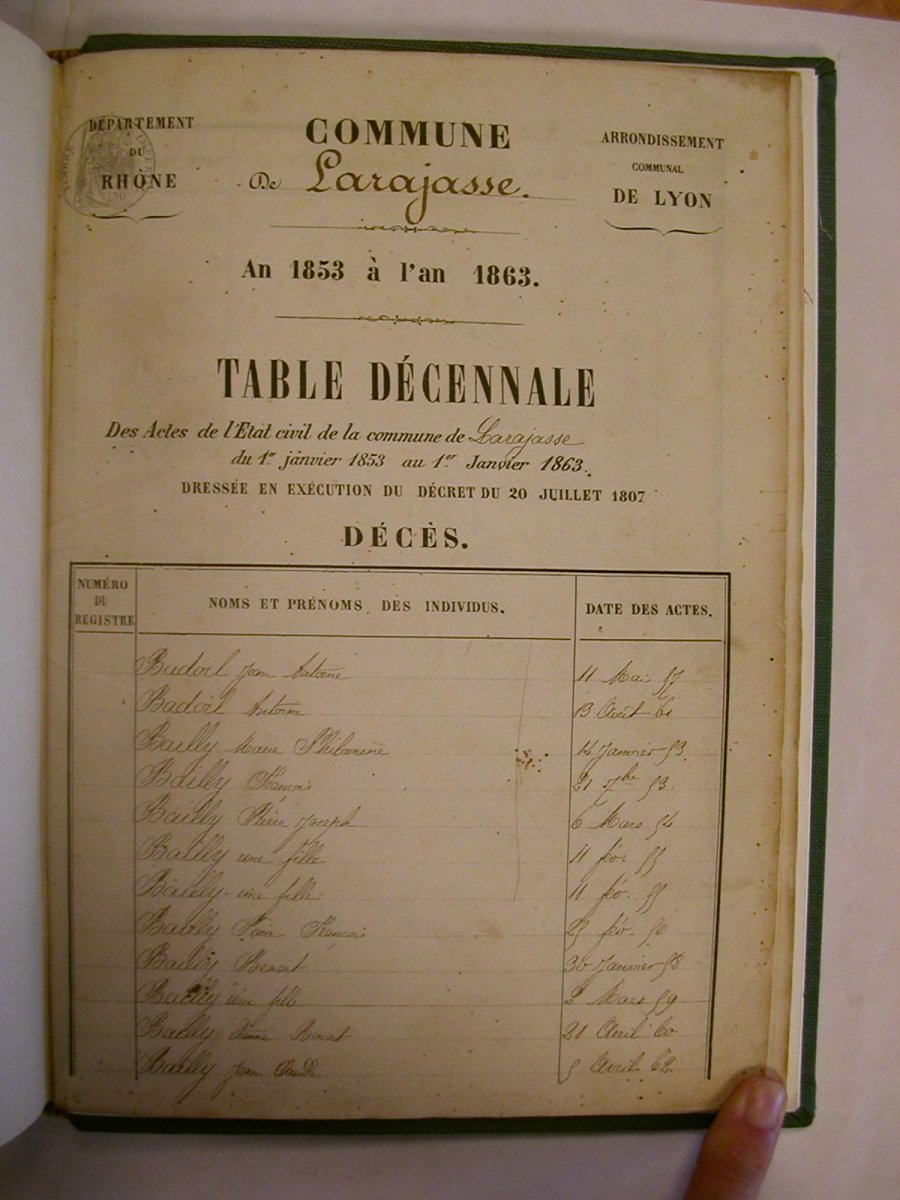 DÉPARTEMENT
DU
RHÔNE
COMMUNE
De Larajasse.
ARRONDISSEMENT
COMMUNAL
DE LYON
An 1853 à l'an 1863.
TABLE DÉCENNALE
Des Actes de l'Etat civil de la commune de Larajasse
du 1er janvier 1853 au 1er Janvier 1863.
DRESSÉE EN EXÉCUTION DU DÉCRET DU 20 JUILLET 1807
DÉCÈS.
NUMÉRO
DU
REGISTRE
NOMS ET PRÉNOMS DES INDIVIDUS.
DATE DES ACTES.
Badoil Jean Antoine 11 Mai 57
Badoil Antoine 13 Août 61
Bailly Marie Philomène 14 Janvier 53
Bailly François 21 7bre 53
Bailly Pierre Joseph 6 Mars 54
Bailly une fille 11 fév. 55
Bailly une fille 11 fév. 55
Bailly François 25 fév. 56
Bailly Benoit 30 Janvier 58
Bailly une fille 2 Mars 59
Bailly Benoit 21 Avril 60
Bailly Jean Claude 5 Avril 62